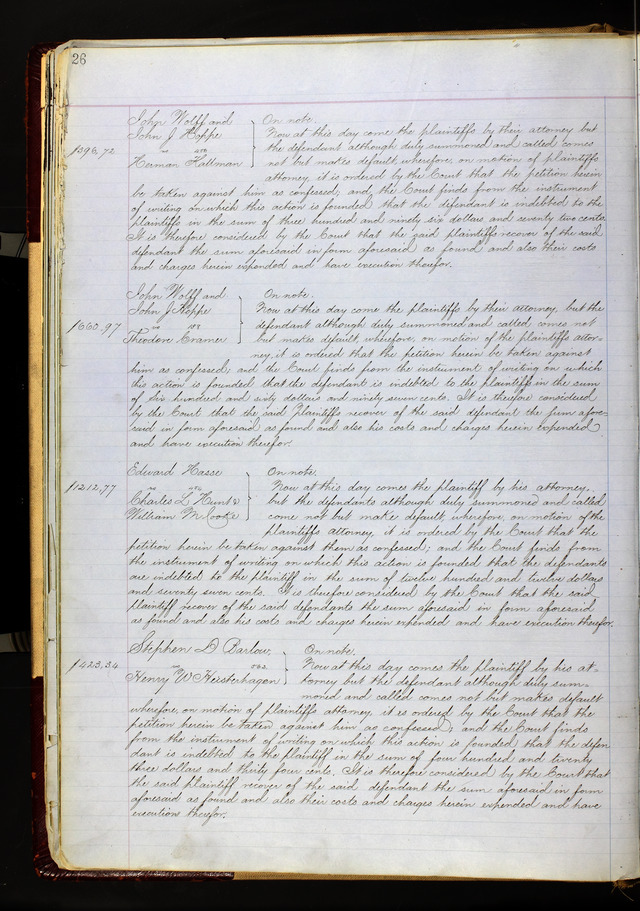 26
John Wolff and
John J Hoppe
vs
$396,72
Herman Hallman
On note.
Now at this day come the plaintiffs by their attorney but
the defendant although duly summoned and called comes
not but makes default, wherefore, on motion of plaintiffs
attorney, it is ordered by the Court that the petition herein
be taken against him as confessed, and, the Court finds from the instrument
of writing on which this action is founded that the defendant is indebted to the
plaintiffs in the sum of three hundred and ninety six dollars and seventy two cents.
It is therefore considered by the Court that the said plaintiffs recover of the said
defendant the sum aforesaid in form aforesaid as found and also their costs
and charges herein expended and have execution therefor.
John Wolff and
John J Hoppe
vs
$660.97
Theodore Cramer
On note.
Now at this day come the plaintiffs by their attorney, but the
defendant although duly summoned and called comes not
but makes default, wherefore, on motion of the plaintiffs attor-
ney, it is ordered that the petition herein be taken against
him as confessed, and the Court finds from the instrument of writing on which
this action is founded that the defendant is indebted to the plaintiffs in the sum
of Six hundred and sixty dollars and ninety seven cents. It is therefore considered
by the Court that the said Plaintiffs recover of the said defendant the sum afore-
said in form aforesaid as found and also his costs and charges herein expended
and have execution therefor.
Edward Hasse
vs
$1212,77
Charles L Hunt &
William M Cooke
On note.
Now at this day comes the plaintiff by his attorney,
but the defendants although duly summoned and called
come not but make default, wherefore, on motion of the
plaintiffs attorney, it is ordered by the Court that the
petition herein be taken against them as confessed; and the Court finds from
the instrument of writing on which this action is founded that the defendants
are indebted to the plaintiff in the sum of twelve hundred and twelve dollars
and seventy seven cents. It is therefore considered by the Court that the said
plaintiff recover of the said defendants the sum aforesaid in form aforesaid
as found and also his costs and charges herein expended and have execution therefor.
Stephen D Barlow,
vs
$423,34
Henry W Kersterhagon
On note.
Now at this day comes the plaintiff by his at-
torney but the defendant although duly sum-
moned and called comes not but makes default
wherefore, on motion of plaintiffs attorney, it is ordered by the Court that the
petition herein be taken against him as confessed; and the Court finds
from the instrument of writing on which this action is founded that the defen
dant is indebted to the plaintiff in the sum of four hundred and twenty
three dollars and thirty four cents. It is therefore considered by the Court that
the said plaintiff recover of the said defendant the sum aforesaid in form
aforesaid as found and also their costs and charges herein expended and have
executions therefor.